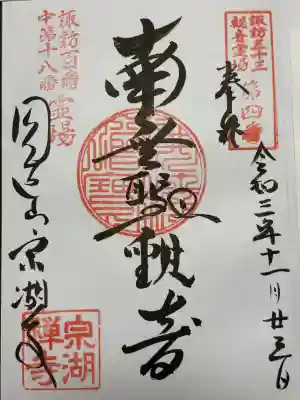 諏訪三十三
観音霊場
第四番
奉拝
令和三年十一月廿三日
南無聖観音
佛法僧寶
諏訪百番
中第十八番
霊場
山宗湖寺
宗湖
禅寺